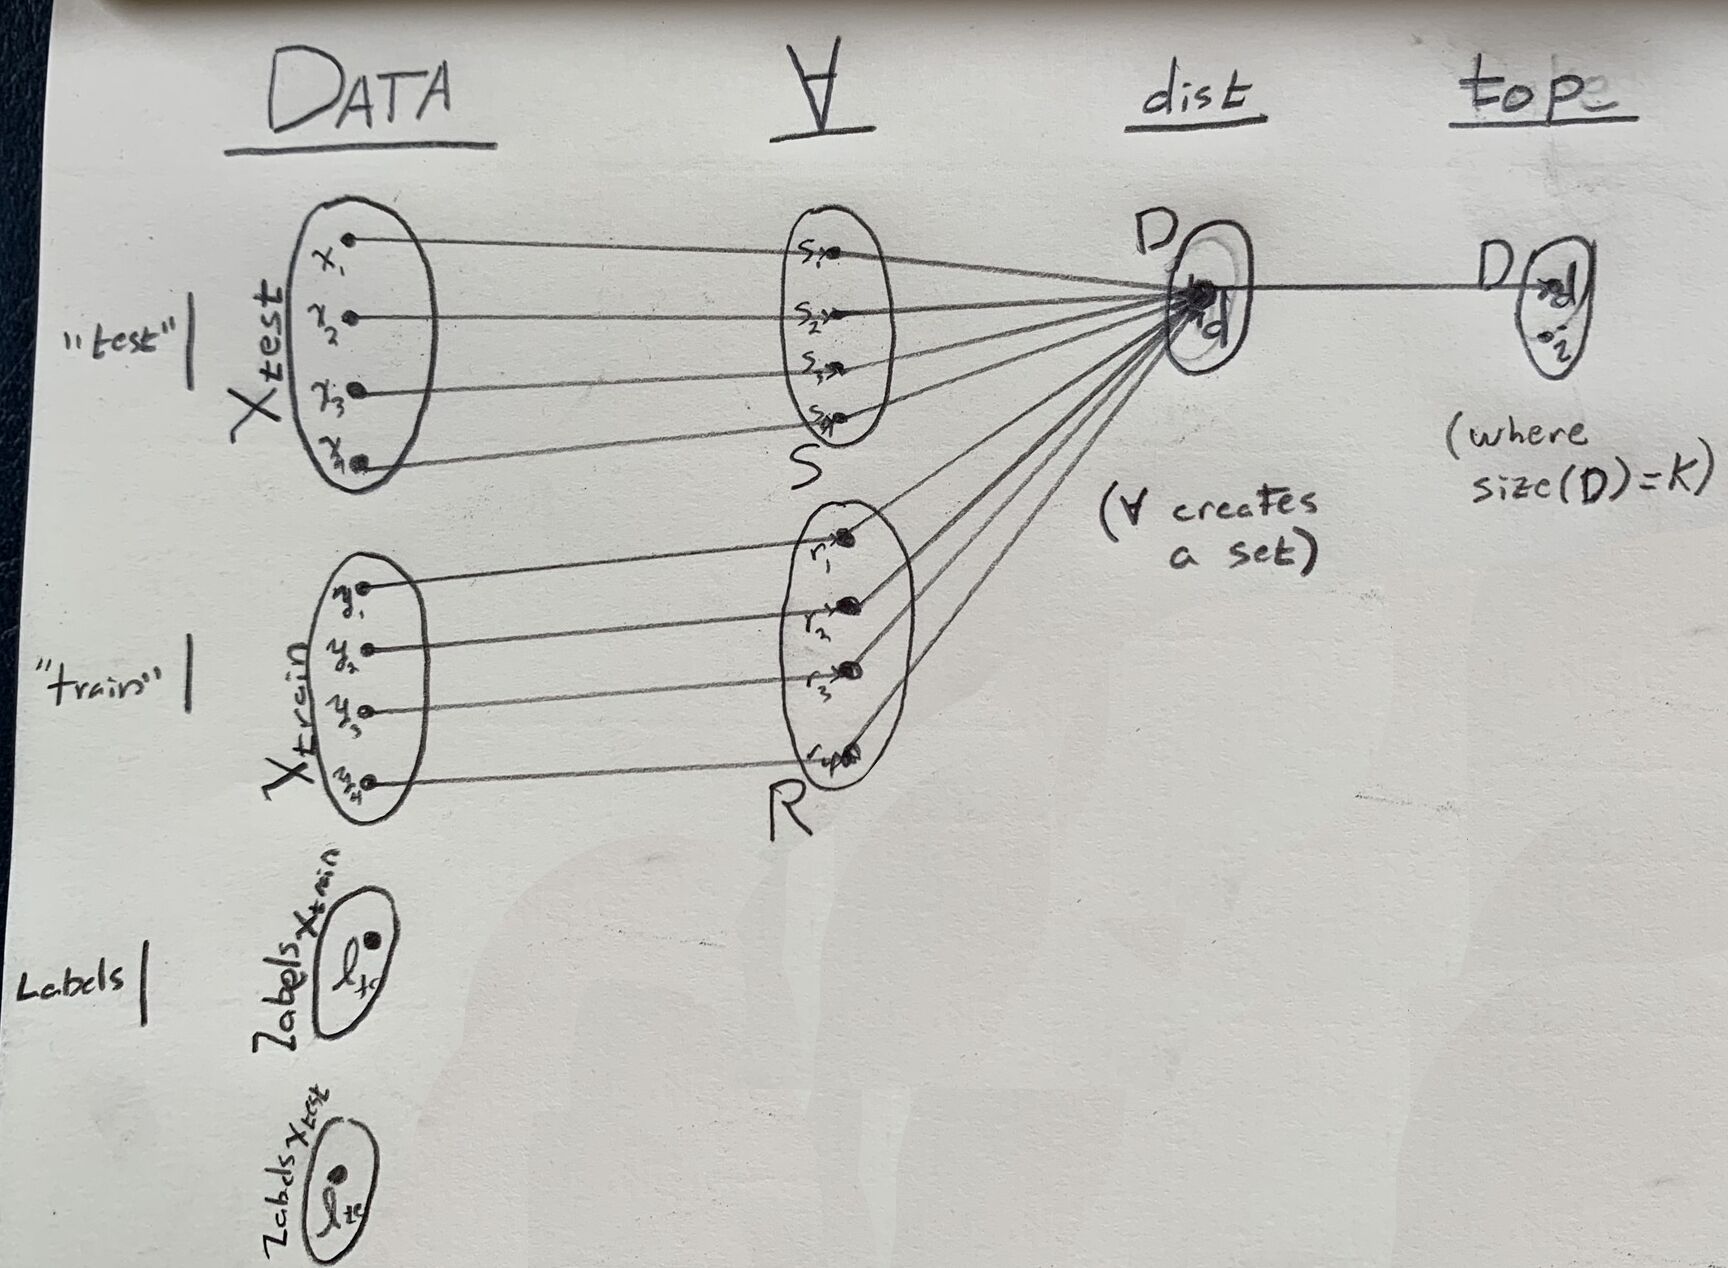 DATA ∀ dist top
"test" Xtest x₁ x₂ x₃ x₄
s₁ s₂ s₃ s₄
S
D d
D d i
(where
size(D)=K)
(∀ creates
a set)
"train" Xtrain y₁ y₂ y₃ y₄
r₁ r₂ r₃ r₄
R
Labels
labels Xtrain
labels Xtest